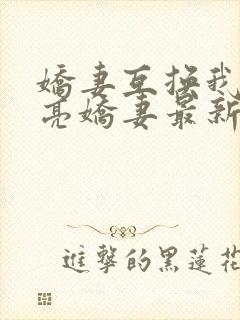 嬌妻互換我
亮嬌妻最新
進擊的黑蓮花